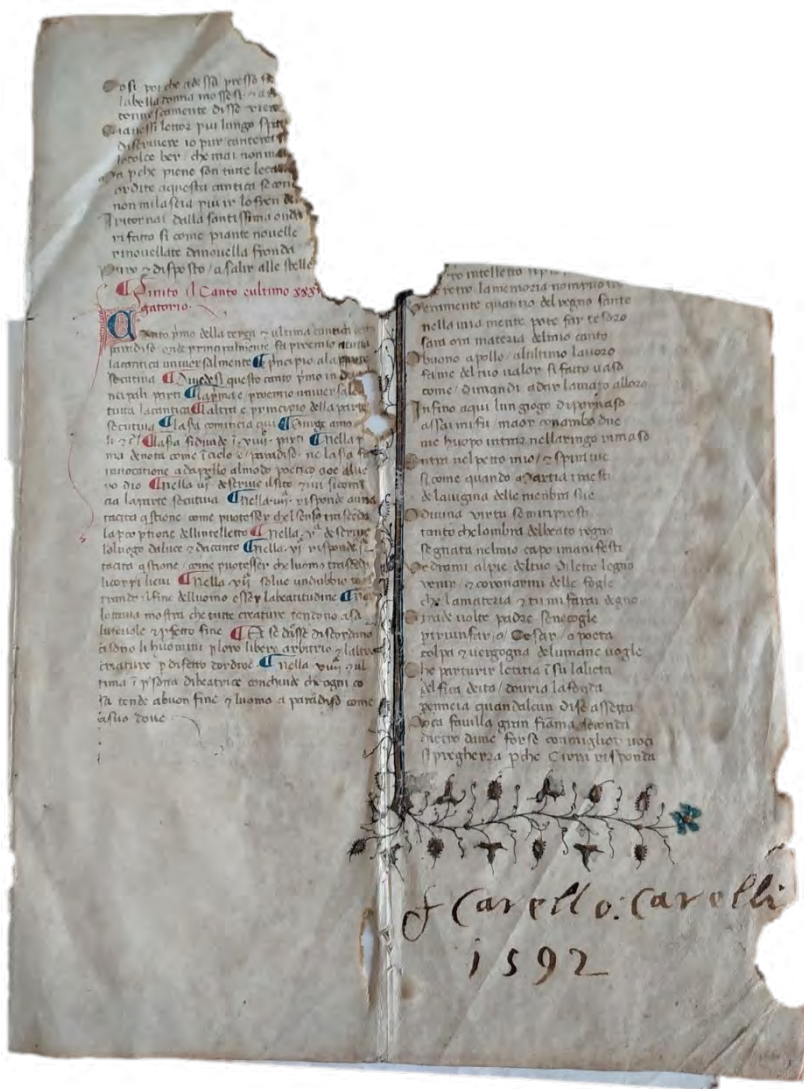 Cosi poi che adessa presso fu
labella donna mossesi & a
donnescamente disse vieni
Sio avessi lettor piu lungo spatio
discrivere io pur canterei
lo dolce ber che mai non m
Ma pche piene son tutte le carte
ordite aquesta cantica secon
non milascia piu ir lo fren de
Io ritornai dalla santissima onda
rifatto si come piante novelle
rinouellate dinouella fronda
Puro & disposto a salir alle stelle
Finito il Canto cultimo xxxi
gatorio
Canto pmo della terça & ultima cantica
paradiso onde principalmente fa proemio
lacantica universalmente principio ala parte
secutiva Diuidesi questo canto pmo in
ncipali parti Lapma e proemio universale
tutta lacantica laltra e principio della parte
secutiva Lasa comincia qui Surge
Lasa sidiuide i viiii parti Nella p
ma denota come i cielo e paradiso ne la sa fa
inuocatione adapollo almodo poetico
ro dio Nella descriue ilsito
cia laparte secutiva Nella risponde auna
tacita qstione come puotesser chelsenso trascenda
la pceptione dellintelletto Nella va descriue
loluogo daluce & dacanto Nella vi risponde
tacita qstione come puotesser che luomo
licorpi lieui Nella vii solue undubbio
ilfine delluomo esser labeatitudine
lottaua mostra che tutte creature tendono asa
& pfetto fine Et se disse discordano
li huomini ploro libero arbitrio & laltre
creature p difetto Nella viiii & ul
tima i psona dibeatrice conchiude che ogni co
sa tende abuon fine & luomo a paradiso come
asuo doue
tro intelletto
retro lamemoria nompuo ire
Veramente quantio del regno santo
nella mia mente pote far tesoro
sara ora materia delmio canto
O buono apollo alultimo lauoro
fame del tuo ualor si fatto uaso
come dimandi adar lamato alloro
Infino aqui lun giogo diparnaso
assai mi fu maor conambo due
me huopo intrar nellaringo rimaso
Entra nel petto mio & spira tue
si come quando Martia traesti
dela uagina delle membra sue
O diuina virtu semi presti
tanto chelombra delbeato regno
segnata nelmio capo imanifesti
Vedrami alpie deltuo diletto legno
venir & coronarmi delle fogle
che lamateria & tu mi farai degno
Si rade uolte padre senecogle
ptriunfar o Cesar o poeta
colpa & uergogna delumane uogle
Che parturir letitia i su lalieta
delfica deita douria lafronda
penneia quandalcun dise asseta
Poca fauilla gran fiama seconda
dietro dame forse conmiglior uoci
si pregherra pche Cirra risponda
Carello: Carelli
1592